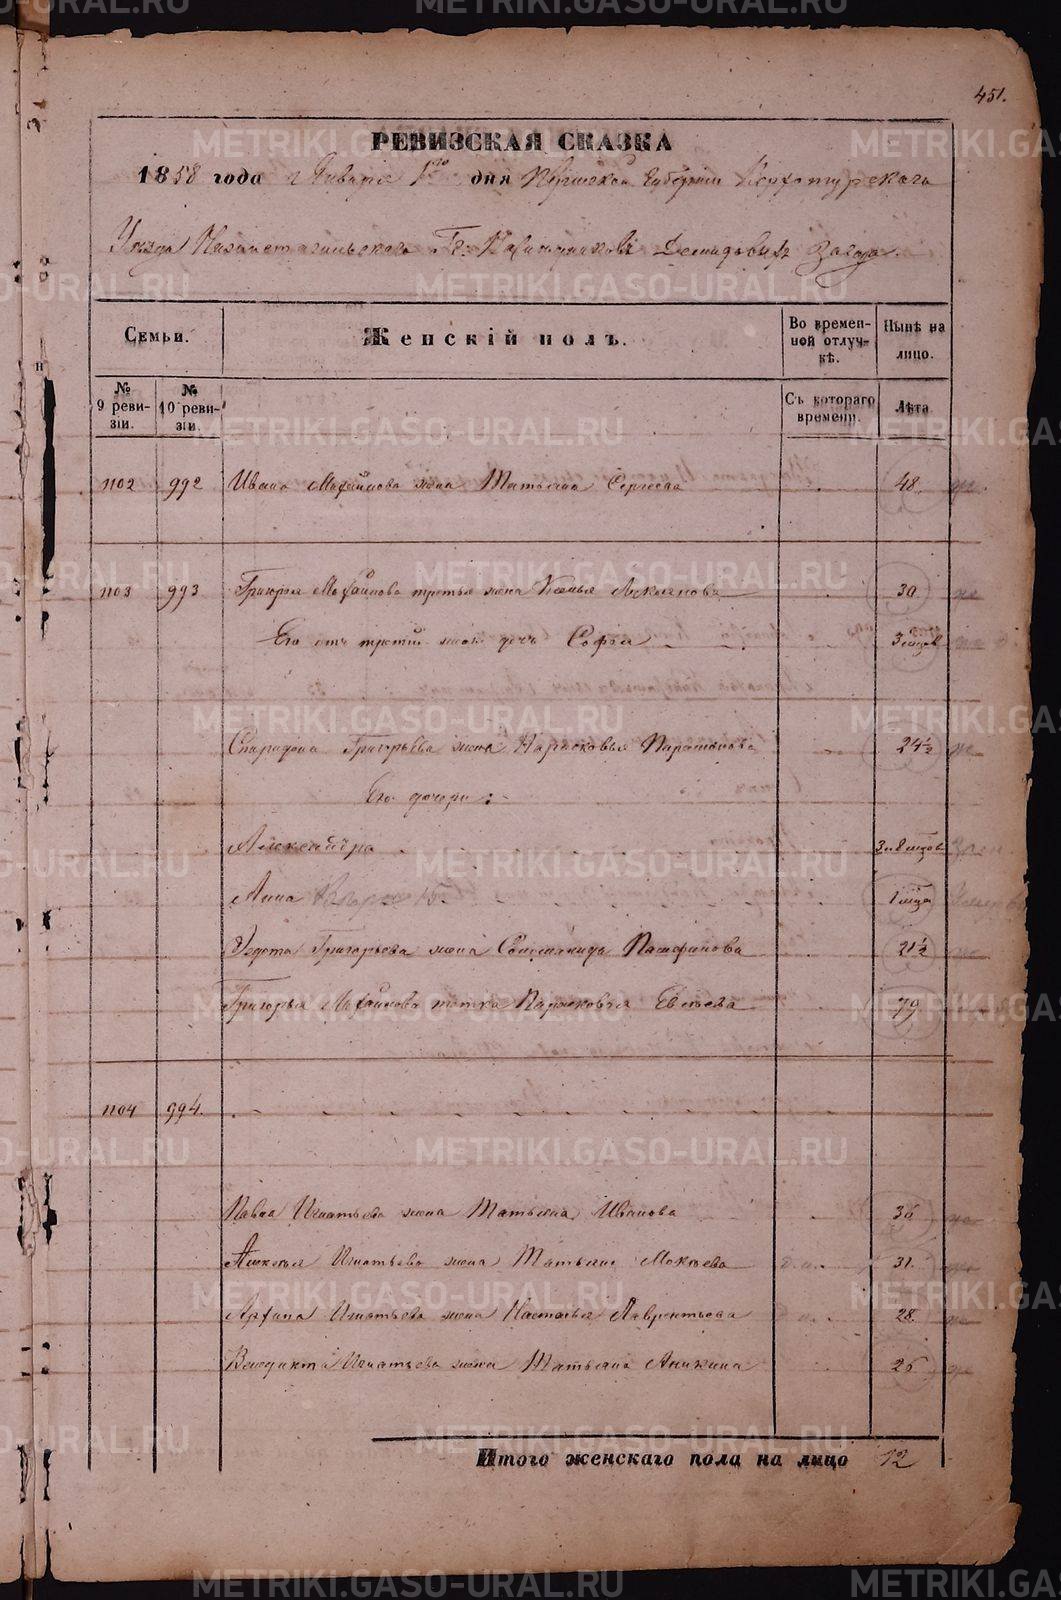 451.
РЕВИЗСКАЯ СКАЗКА
1858 года Января 1го дня Пермской Губернии Верхотурского
Уезда Нижнетагильского Гг. Наследниковъ Демидовыхъ завода
Семьи.
Женскій полъ.
Во времен-
ной отлуч-
кѣ.
Нынѣ на
лицо.
№
9 реви-
зіи.
№
10 реви-
зіи.
Съ котораго
времени.
Лѣта
1102 992 Ивана жена Татьяна Сергеева 48.
1103 993 Григорья третья жена Ксенья 30
Его отъ третей жены дочь Софья 3 мцов
Спиридона Григорьева жена Парасковья 24½
Его дочери:
Александра 3 и 8 мцов
Анна 1 мца
Федота Григорьева жена Соломанида 21½
Григорья тетка Парасковья Евсеева 79
1104 994.
Павла Игнатьева жена Татьяна Иванова 36
Алексея Игнатьева жена Татьяна Мокеева 31.
Архипа Игнатьева жена Настасья Лаврентьева 28.
Венедикта Игнатьева жена Татьяна Аникина 26
Итого женскаго пола на лицо 12
METRIKI.GASO-URAL.RU